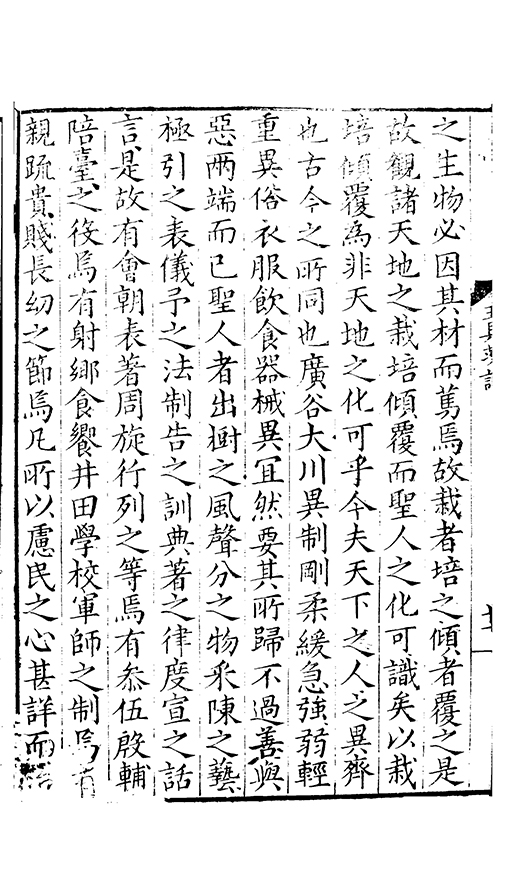 之生物必因其材而篤焉故栽者培之傾者覆之是
故觀諸天地之栽培傾覆而聖人之化可識矣以栽
培傾覆為非天地之化可乎今夫天下之人之異齊
也古今之所同也廣谷大川異制剛柔緩急強弱輕
重異俗衣服飲食器械異冝然要其所歸不過善與
惡兩端而已聖人者出樹之風聲分之物采陳之藝
極引之表儀予之法制告之訓典著之律度宣之話
言是故有會朝表著周旋行列之等焉有叅伍殷輔
陪臺之役焉有射鄉食饗井田學校軍師之制焉有
親疏貴賤長幼之節焉凡所以慮民之心甚詳而